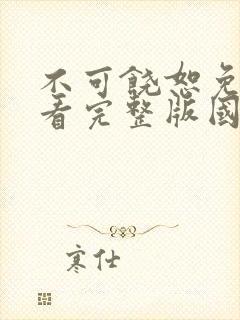 不可饶恕免
看完整版国
寒仕